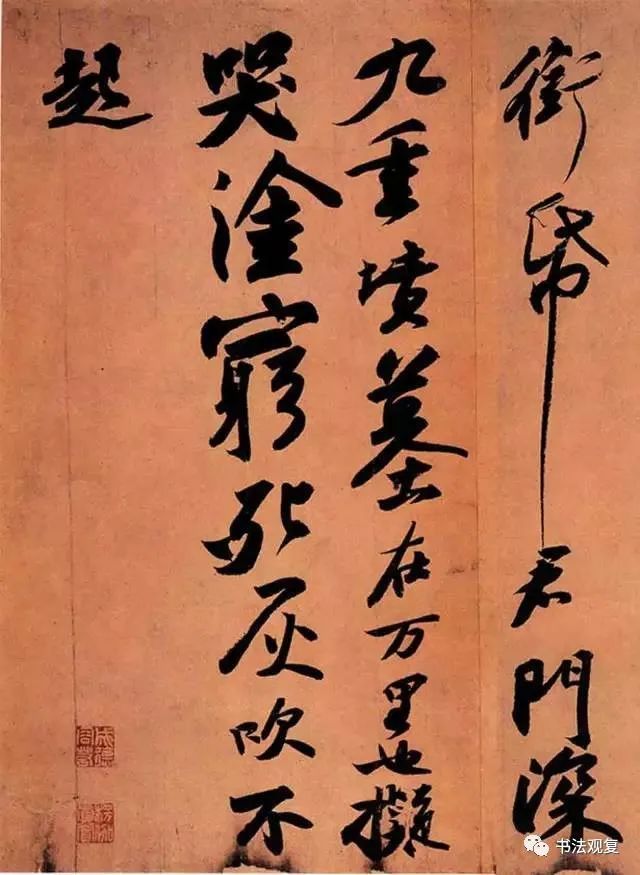 銜帋君門深
九重墳墓在万里也擬
哭塗窮死灰吹不
起
书法观复